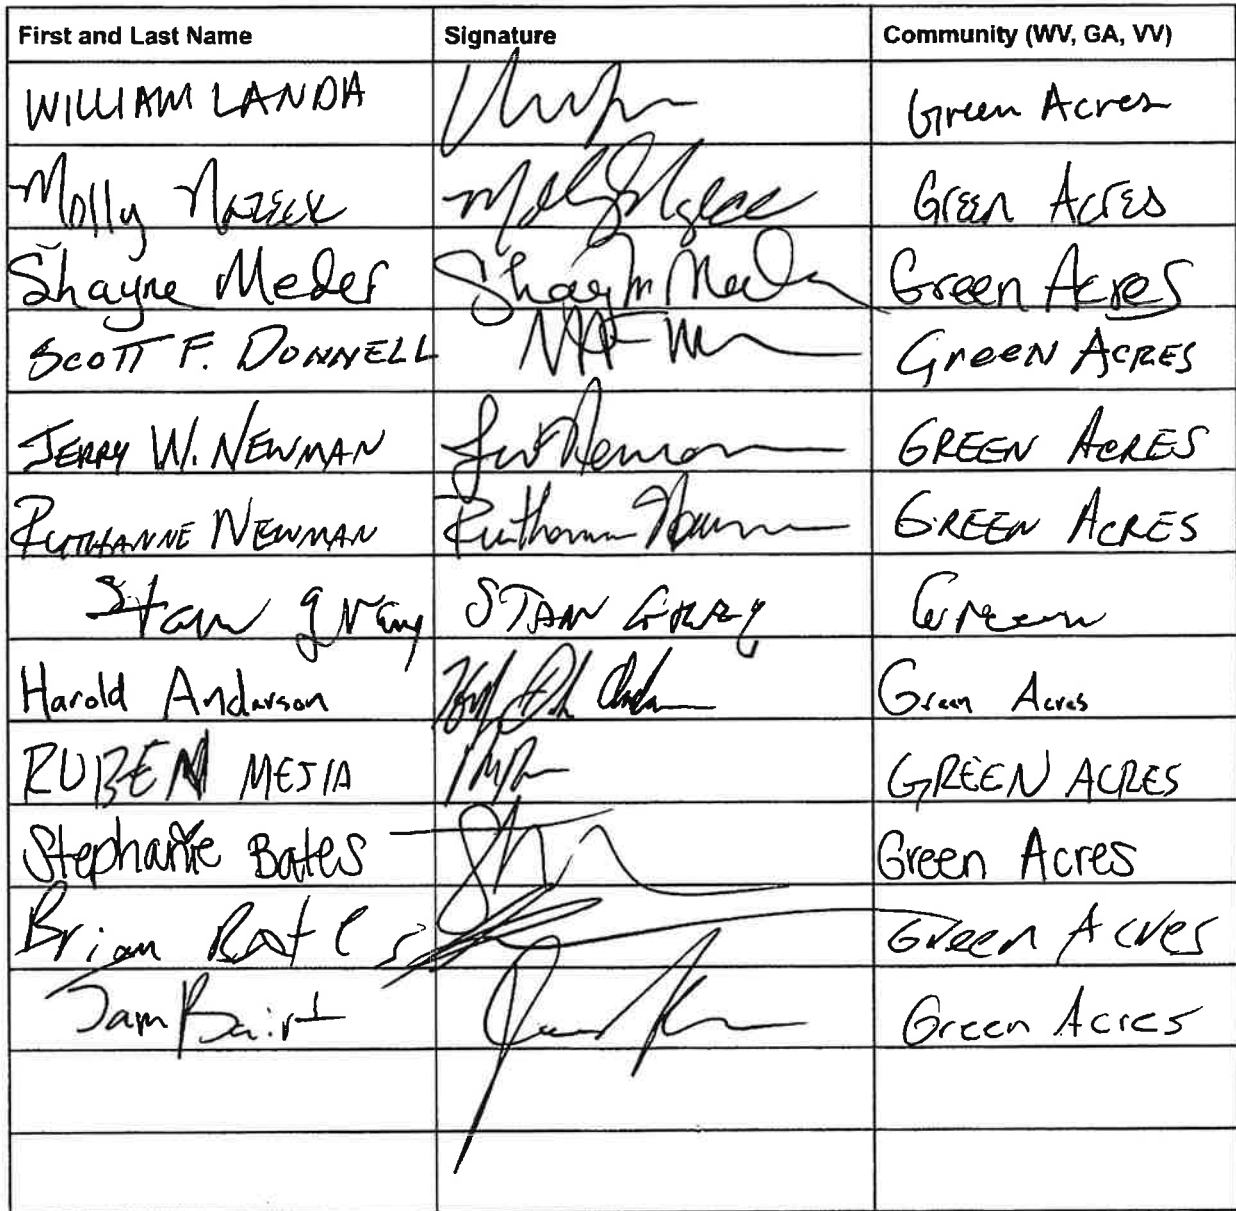 First and Last Name Signature Community (WV, GA, VV)
WILLIAM LANDA Green Acres
Molly Green Acres
Shayne Meder Shay Green Acres
SCOTT F. DONNELL GREEN ACRES
JERRY W. NEWMAN Newman GREEN ACRES
RUTHANNE NEWMAN Ruthanne Newman GREEN ACRES
Stan Gray STAN GRAY Green
Harold Anderson Green Acres
RUBEN MEJIA GREEN ACRES
Stephanie Bates Green Acres
Brian Bates Green Acres
Green Acres